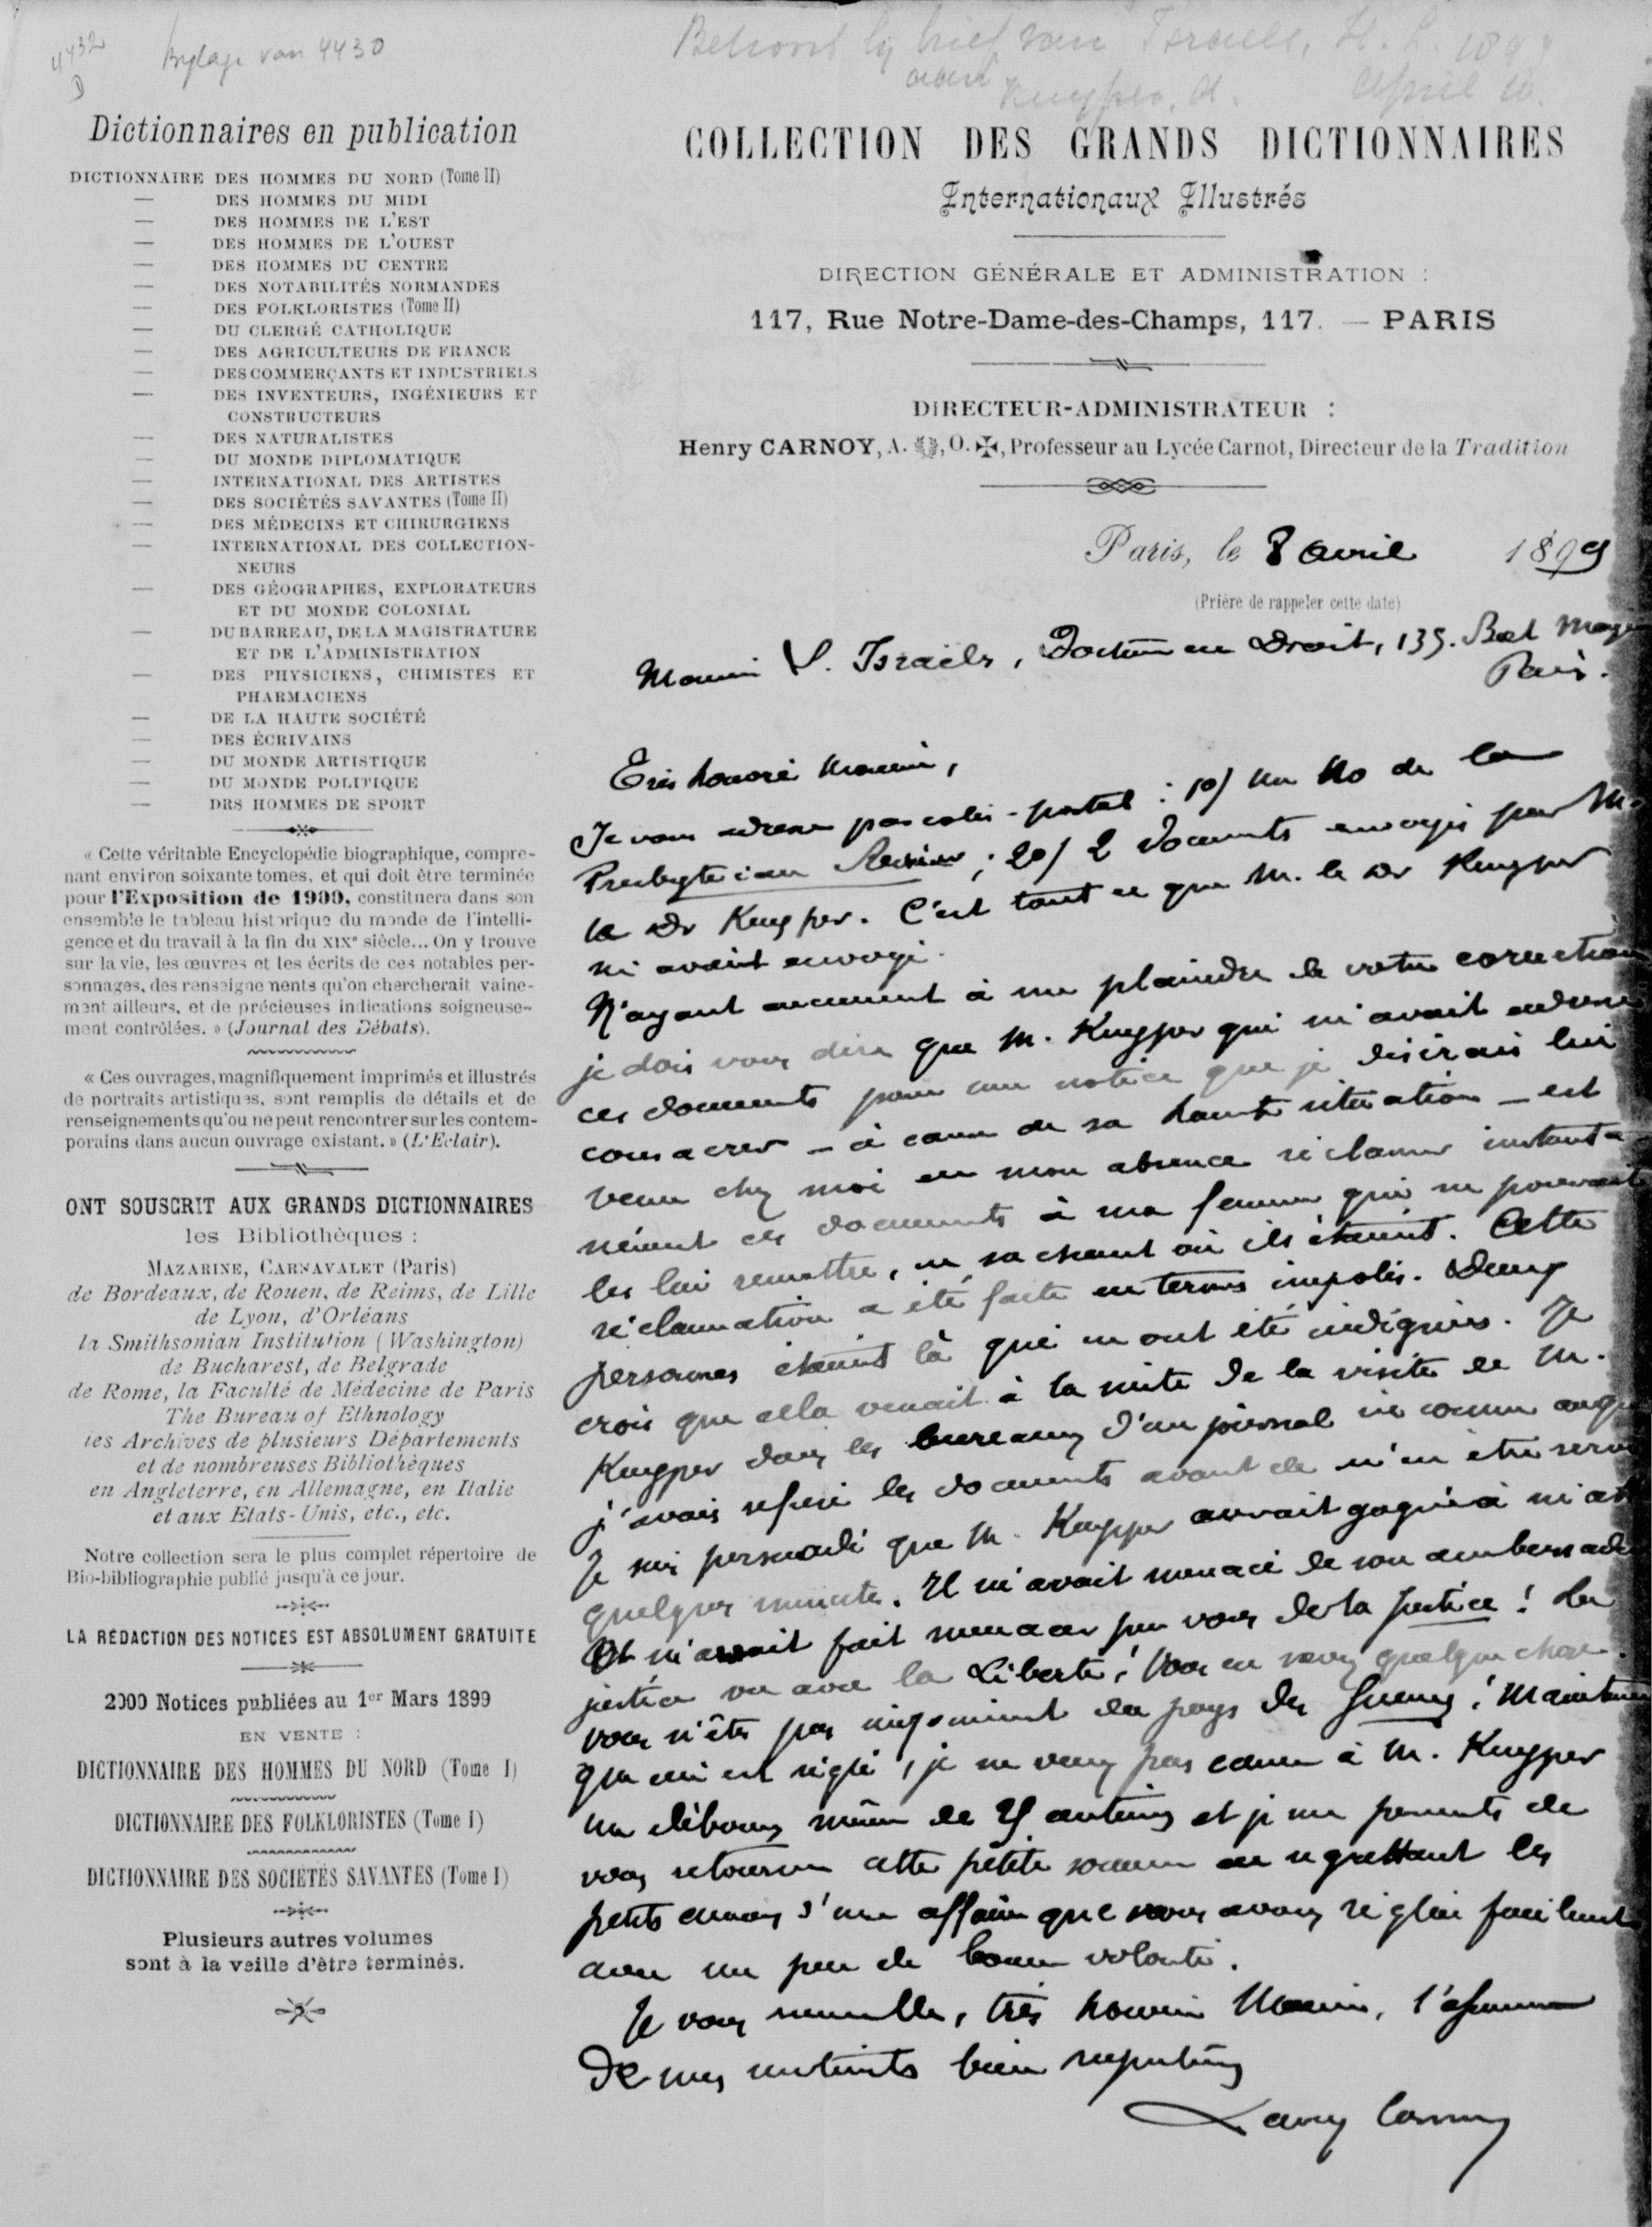 4432
D
Bylage van 4430
Behoort bij brief van Israels, H. L. 1899
aan Kuyper, A. April 10.
Dictionnaires en publication
DICTIONNAIRE DES HOMMES DU NORD (Tome II)
— DES HOMMES DU MIDI
— DES HOMMES DE L'EST
— DES HOMMES DE L'OUEST
— DES HOMMES DU CENTRE
— DES NOTABILITÉS NORMANDES
— DES FOLKLORISTES (Tome II)
— DU CLERGÉ CATHOLIQUE
— DES AGRICULTEURS DE FRANCE
— DES COMMERÇANTS ET INDUSTRIELS
— DES INVENTEURS, INGÉNIEURS ET
CONSTRUCTEURS
— DES NATURALISTES
— DU MONDE DIPLOMATIQUE
— INTERNATIONAL DES ARTISTES
— DES SOCIÉTÉS SAVANTES (Tome II)
— DES MÉDECINS ET CHIRURGIENS
— INTERNATIONAL DES COLLECTION-
NEURS
— DES GÉOGRAPHES, EXPLORATEURS
ET DU MONDE COLONIAL
— DU BARREAU, DE LA MAGISTRATURE
ET DE L'ADMINISTRATION
— DES PHYSICIENS, CHIMISTES ET
PHARMACIENS
— DE LA HAUTE SOCIÉTÉ
— DES ÉCRIVAINS
— DU MONDE ARTISTIQUE
— DU MONDE POLITIQUE
— DRS HOMMES DE SPORT
« Cette véritable Encyclopédie biographique, compre-
nant environ soixante tomes, et qui doit être terminée
pour l'Exposition de 1900, constituera dans son
ensemble le tableau historique du monde de l'intelli-
gence et du travail à la fin du XIXe siècle... On y trouve
sur la vie, les œuvres et les écrits de ces notables per-
sonnages, des renseignements qu'on chercherait vaine-
ment ailleurs, et de précieuses indications soigneuse-
ment contrôlées. » (Journal des Débats).
« Ces ouvrages, magnifiquement imprimés et illustrés
de portraits artistiques, sont remplis de détails et de
renseignements qu'ou ne peut rencontrer sur les contem-
porains dans aucun ouvrage existant. » (L'Eclair).
ONT SOUSCRIT AUX GRANDS DICTIONNAIRES
les Bibliothèques :
MAZARINE, CARNAVALET (Paris)
de Bordeaux, de Rouen, de Reims, de Lille
de Lyon, d'Orléans
la Smithsonian Institution (Washington)
de Bucharest, de Belgrade
de Rome, la Faculté de Médecine de Paris
The Bureau of Ethnology
les Archives de plusieurs Départements
et de nombreuses Bibliothèques
en Angleterre, en Allemagne, en Italie
et aux Etats-Unis, etc., etc.
Notre collection sera le plus complet répertoire de
Bio-bibliographie publié jusqu'à ce jour.
LA RÉDACTION DES NOTICES EST ABSOLUMENT GRATUITE
2000 Notices publiées au 1er Mars 1899
EN VENTE :
DICTIONNAIRE DES HOMMES DU NORD (Tome I)
DICTIONNAIRE DES FOLKLORISTES (Tome I)
DICTIONNAIRE DES SOCIÉTÉS SAVANTES (Tome I)
Plusieurs autres volumes
sont à la veille d'être terminés.
COLLECTION DES GRANDS DICTIONNAIRES
Internationaux Illustrés
DIRECTION GÉNÉRALE ET ADMINISTRATION :
117, Rue Notre-Dame-des-Champs, 117. — PARIS
DIRECTEUR-ADMINISTRATEUR :
Henry CARNOY, A. , O. , Professeur au Lycée Carnot, Directeur de la Tradition
Paris, le 8 avril 1899
(Prière de rappeler cette date)
Monsieur Israëls, Docteur en Droit, 135. Bd
Paris.
Très honoré Monsieur,
Je vous adresse par colis-postal : 1o/ un No de la
Presbyterian Review ; 2o/ 2 documents envoyés par M.
le Dr Kuyper. C'est tout ce que M. le Dr Kuyper
m'avait envoyé.
N'ayant aucunement à me plaindre de votre correction
je dois vous dire que M. Kuyper qui m'avait adressé
ces documents pour une notice que je désirais lui
consacrer — à cause de sa haute situation — est
venu chez moi en mon absence réclamer instanta-
nément ces documents à ma femme qui ne pouvait
les lui remettre, ne sachant où ils étaient. Cette
réclamation a été faite en termes impolis. Deux
personnes étaient là qui en ont été indignées. Je
crois que cela venait à la suite de la visite de M.
Kuyper dans les bureaux d'un journal
j'avais refusé les documents avant de m'en être servi
Je suis persuadé que M. Kuyper aurait gagné à
quelques minutes. Il m'avait menacé de son ambassade
Et m'avait fait menacer par vous de la Justice ! La
justice va avec la Liberté ! Vous en savez quelque chose.
vous n'êtes pas du pays des Gueux ! Maintenant
que ceci est réglé, je ne veux pas causer à M. Kuyper
un débours même de 25 centimes et je me permets de
vous retourner cette petite somme en regrettant les
petits ennuis d'une affaire que nous avons réglée facilement
avec un peu de bonne volonté.
Je vous renouvelle, très honoré Monsieur, l'assurance
de mes sentiments bien respectueux
Henry Carnoy